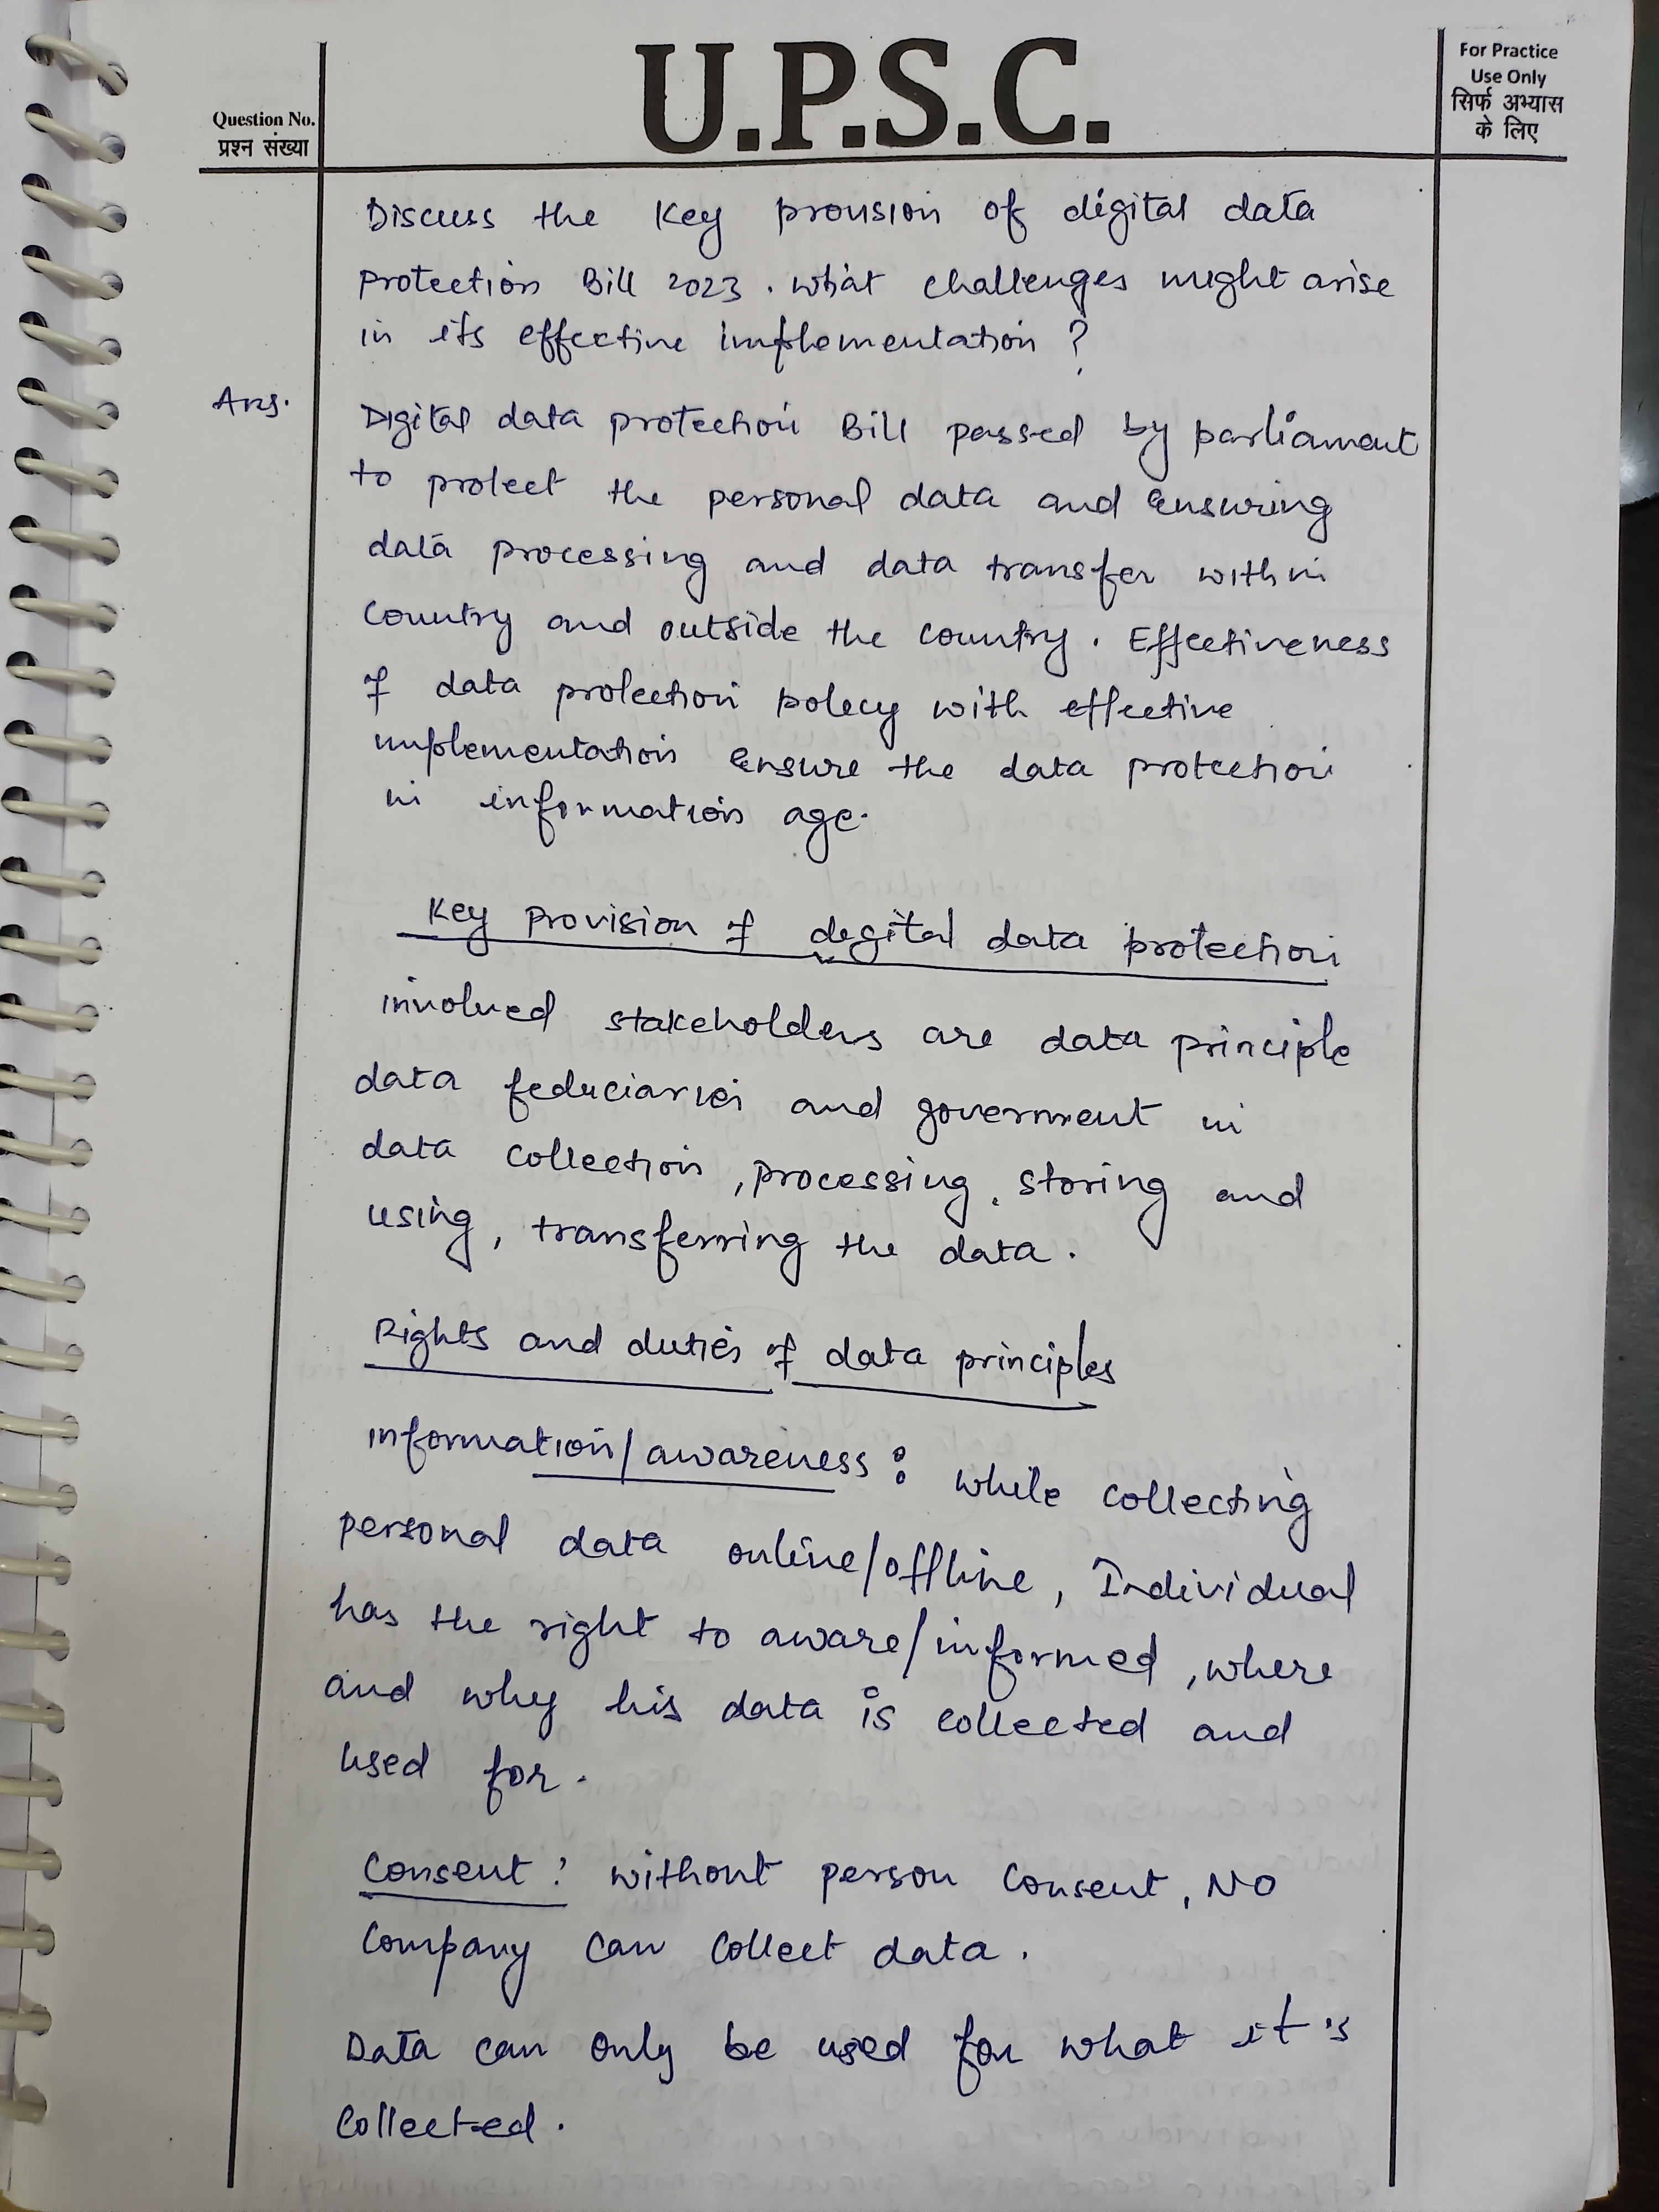 Question No.
प्रश्न संख्या
U.P.S.C.
For Practice
Use Only
सिर्फ अभ्यास
के लिए
Discuss the Key provision of digital data
protection Bill 2023. what challenges might arise
in its effective implementation ?
Ans.
Digital data protection Bill passed by parliament
to protect the personal data and Ensuring
data processing and data transfer within
Country and outside the country. Effectiveness
of data protection policy with effective
implementation Ensure the data protection
in information age.
Key provision of degital data protection
involved stakeholders are data principle
data feduciaries and government in
data collection, processing, storing and
using, transferring the data.
Rights and duties of data principles
information/awareness: while collecting
personal data online/offline, Individual
has the right to aware/informed, where
and why his data is collected and
used for.
Consent: without person consent, No
Company can collect data.
Data can only be used for what it's
Collected.